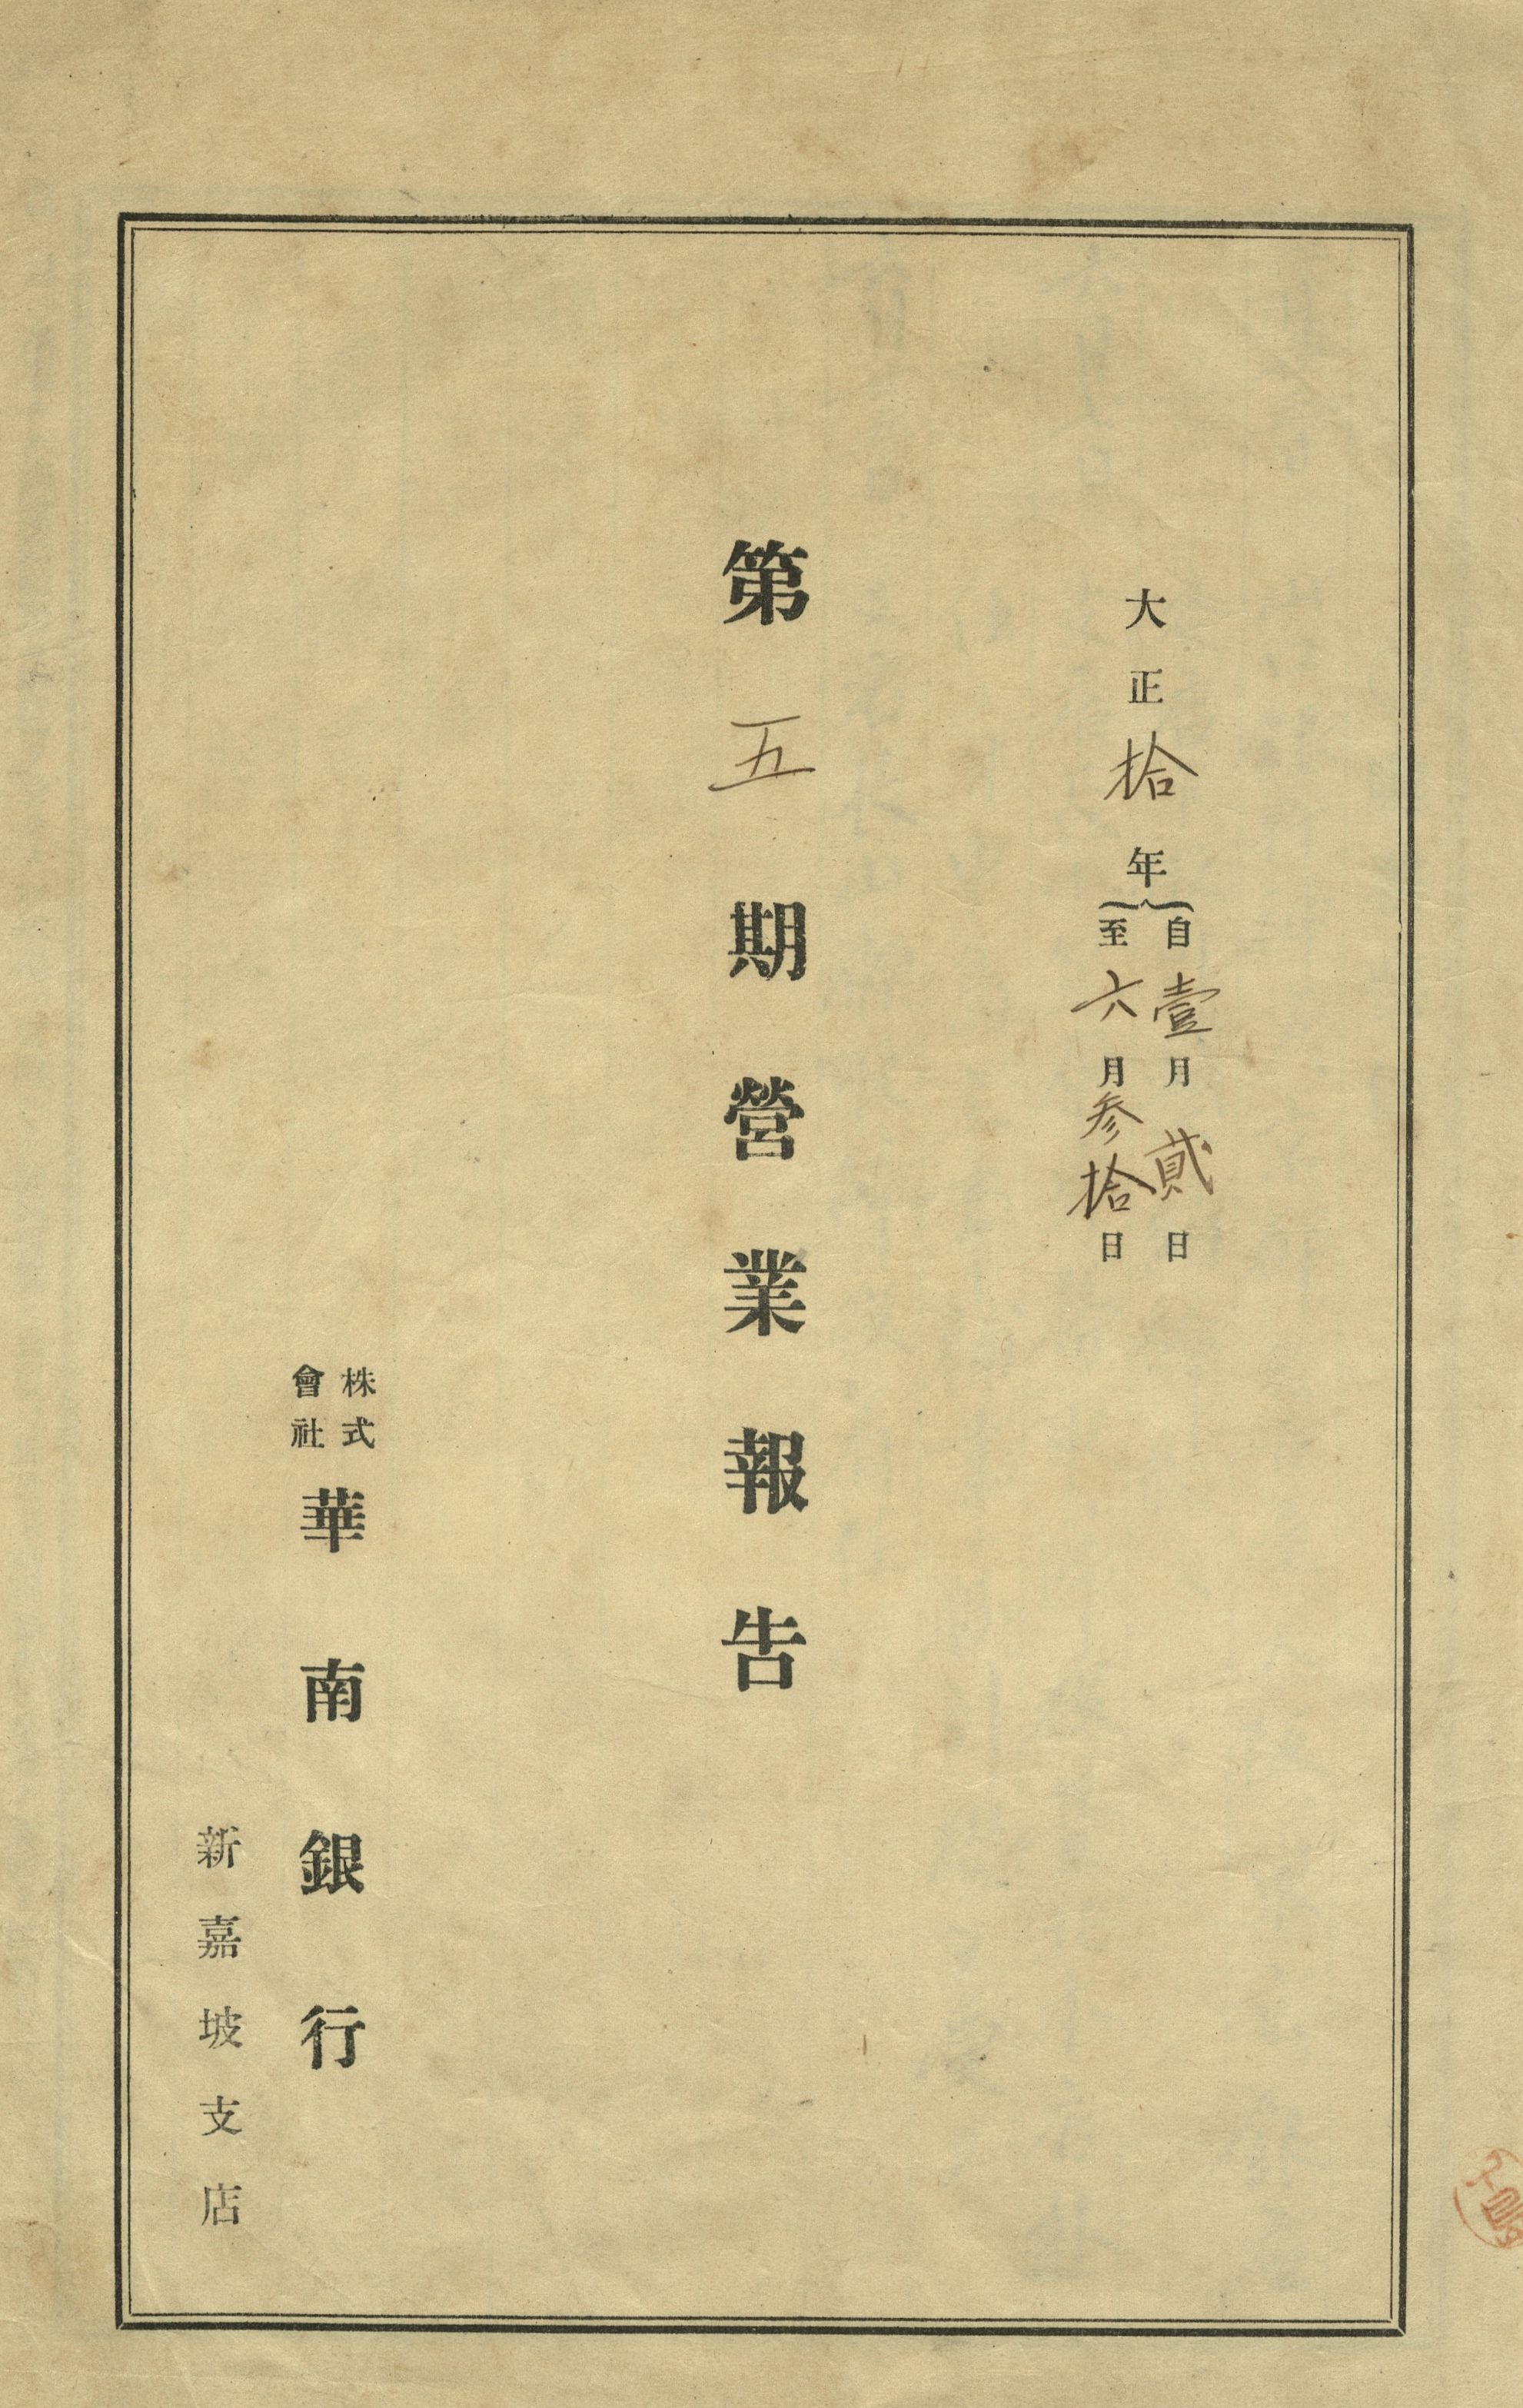 大正拾年
自壹月貳日
至六月参拾日
第五期營業報告
株式
會社
華南銀行
新嘉坡支店